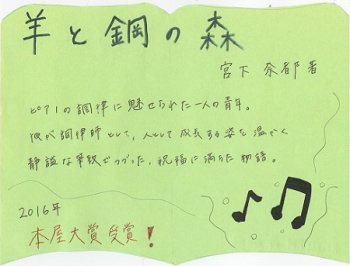 羊と鋼の森
宮下 奈都 著
ピアノの調律に魅せられた一人の青年。
彼が調律師として、人として成長する姿を温かく
静謐な筆致でつづった、祝福に満ちた物語。
2016年
本屋大賞受賞!